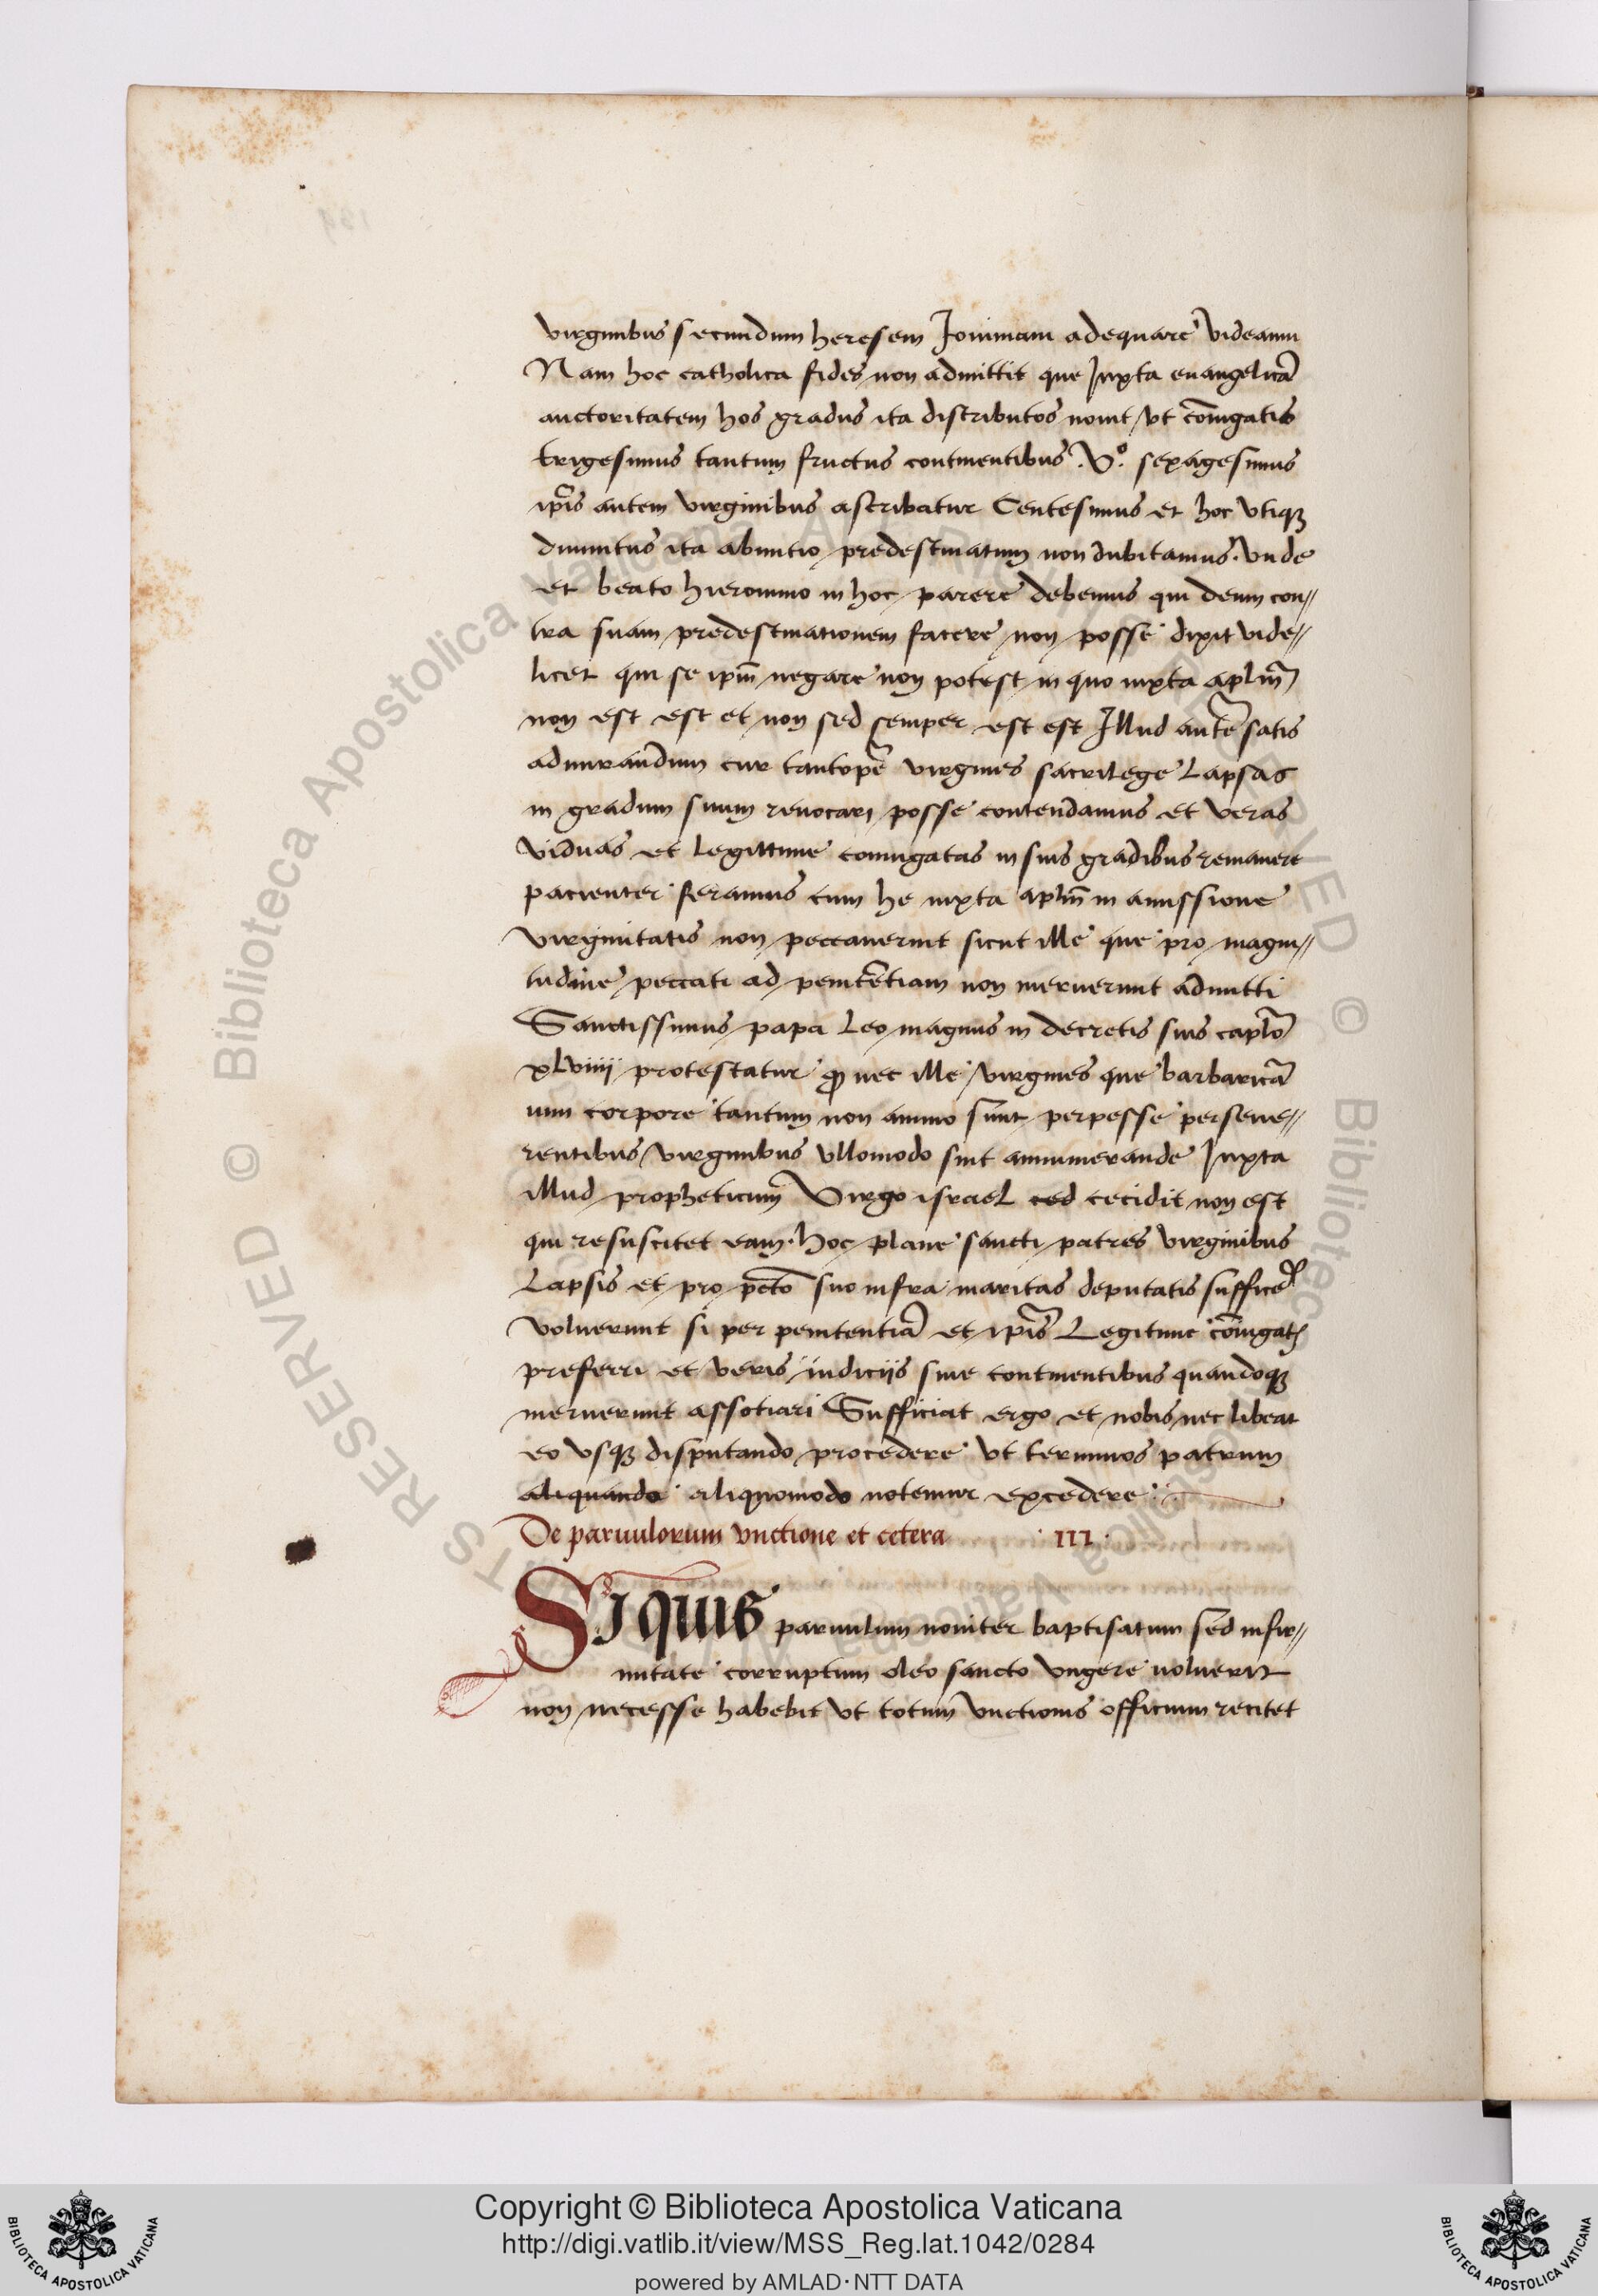 virginibus secundum heresem Joviniani adequare videamur
Nam hoc catholica fides non admittit que Juxta euangelicā
auctoritatem hos gradus ita distributos nouit / vt cōiugatis
trigesimus tantum fructus continentibus .Vº. sexagesimus
ip̄is autem virginibus ascribatur Centesimus et hoc vtiqȝ
diuinitus ita abinitio predestinatum non dubitamus. Vnde
et beato hieronimo in hoc parere debemus qui deum con//
tra suam predestinationem facere non posse dixit vide//
licet qui se ip̄m negare non potest in quo iuxta ap̄lm̄
non est est et non sed semper est est Illud autē satis
admirandum cur tantopē virgines sacrilege lapsas
in gradum suum reuocari posse contendamus et veras
viduas et legittime coniugatas in suis gradibus remanere
pacienter feramus cum he iuxta ap̄lm̄ in amissione
virginitatis non peccauerint sicut ille que pro magni//
tudine peccati ad penitētiam non meruerunt admitti
Sanctissimus papa Leo magnus in decretis suis cap̄lō
xLviiii protestatur ꝙ nec ille virgines que barbaricā
uim corpore tantum non animo sunt perpesse perseue//
rentibus virginibus vllomodo sint annumerande Juxta
illud propheticum Virgo israel ced cecidit non est
qui resuscitet eam. hoc plane sancti patres virginibus
Lapsis et pro pctō suo infra maritas deputatis sufficē
voluerunt si per penitentiā et ip̄is Legitime cōiugatꝭ
preferri et veris indiciis siue continentibus quandoqȝ
meruerunt assotiari Sufficiat ergo et nobis nec libeat
eo vsqȝ disputando procedere vt terminos patrum
aliquando aliquomodo notemur excedere
De paruulorum vnctione et cetera · III ·
SI quis paruulum nouiter baptisatum sed infir//
mitate corruptum oleo sancto vngere uoluerit
non necesse habebit vt totum vnctionis officium recitet
Copyright © Biblioteca Apostolica Vaticana
http://digi.vatlib.it/view/MSS_Reg.lat.1042/0284
powered by AMLAD·NTT DATA